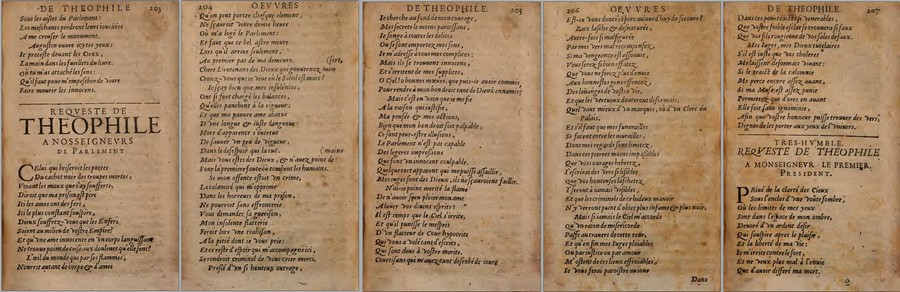 DE THEOPHILE 203
Sous les aistes du Parlement:
Les meschans perdront leurs
A me creuser le monument.
Augustin ouure icy tes yeux:
Ie proteste deuant les Cieux,
La main dans les fueillets du liure,
Où tu m'as attaché les sens:
Qu'il faut pour m'empescher de viure
Faire mourir les innocens.
REQVESTE DE
THEOPHILE
A NOSSEIGNEVRS
DE PARLEMENT.
CElui qui briseroit les portes
Du cachot noir des troupes mortes,
Voyant les maux que i'ay soufferts,
Diroit que ma prison est pire
Icy les ames ont des fers,
Icy le plus constant souspire,
Dieux souffrez-vous que les Enfers
Soient au milieu de vostre Empire?
Et qu'vne ame innocente en vn corps languissant
Ne trouue point de crise aux douleurs qu'elle sent?
L'œil du monde qui par ses flammes,
Nourrit autant de corps & d'ames
204 OEVVRES
Qu'on peut porter chasque element,
Ne sçauroit viure demie heure
Où m'a logé le Parlement:
Et faut que ce bel astre meure
Lors qu'il arriue seulement,
Au premier pas de ma demeure.
Chers Lieutenans des Dieux qui gouuernez mon sort,
Croiez-vous que ie viue où le Soleil est mort?
Ie sçay bien que mes insolences,
Ont si fort chargé les balances,
Qu'elles panchent à la vigueur:
Et que ma pauure ame abatue
D'vne longue & iuste langueur:
Hors d'apparence s'euertue
De sauuer vn peu de vigueur,
Dans le desespoir qui la tue.
Mais vous estes des Dieux, & n'auez point de mains
Pour la premiere faute où tombent les humains.
Si mon offense estoit vn crime,
La calamité qui m'opprime
Dans les horreurs de ma prison,
Ne pourroit sans effronterie
Vous demander sa guerison,
Mon insolente flatterie
Feroit lors vne trahison,
A la pitié dont ie vous prie:
Et ce reste d'espoir qui m'accompagne ici,
Se rendroit criminel de vous crier merci.
Pressé d'vn si honteux outrage,
DE THEOPHILE. 205
Ie cherche au fond de mon courage,
Mes secrets le moins paroissans,
Ie songe à toutes les delices
Où se sont emportez mes sens,
Ie m'adresse à tous mes complices:
Mais ils se trouuent innocens,
Et s'irritent de mes supplices,
O Ciel! ô bonnes mœurs, que puis-ie auoir commis
Pour rendre à mon bon droit tant de Dieux ennemis?
Mais c'est en vain que ie me fie
A la raison qui iustifie,
Ma pensée & mes actions,
Bien que mon bon droit soit palpable,
Ce sont peut-estre illusions,
Le Parlement n'est pas capable
Des legeres impressions
Qui font vn innocent coulpable.
Quelque tort apparent qui me puisse assaillir,
Mes iuges sont des Dieux, ils ne sçauroient faillir.
N'ai-ie point merité la flame
De n'auoir sceu ploier mon ame
A louer vos diuins esprits?
Il est temps que le Ciel s'irrite,
Et qu'il punisse le mespris
D'vn flatteur de Cour hypocrite
Qui vous a volé tant d'escrits,
Qui sont deus à vostre merite.
Courtisans qui m'auez tant desrobé de iours
206 OEVVRES
Est-ce vous dont i'espere aujourd'huy du secours?
Race lasche & desnaturée,
Autre-fois si mal figurée
Par mes vers mal recompensez,
Si ma vengeance est assouuie,
Vous serez si bien effacez,
Que vous ne ferez plus d'enuie
Aux honnestes gens offensez,
Des louanges de vostre vie,
Et que les vertueux douteront desormais,
Quel vaut mieux d'vn marquis, ou d'vn Clerc du
Palais.
Et s'il faut que mes funerailles
Se facent entre les murailles
Dont mes regards sont limitez,
Dans ces pierres moins impassibles
Que vos courages hebetez,
I'escriray des vers si lisibles,
Que vos honteuses laschetez
Y seront à iamais visibles,
Et que les criminels de ce hideux manoir
N'y verront point d'objet plus infame & plus noir.
Mais si iamais le Ciel m'accorde
Qu'vn raion de misericorde
Passe au trauers de cette tour,
Et qu'en fin mes Iuges ploiables
Ou par iustice ou par amour
M'ostent de ces lieux effroiables,
Ie vous ferai paroistre au iour
Dans
DE THEOPHILE. 207
Dans des pourtraits si venerables,
Que vostre foible esclat se trouuera si faux
Que vos fils rougiront de vos sales defaux.
Mes Iuges, mes Dieux tutelaires
S'il est iuste que vos choleres
Me laissent desormais viuant:
Si le traict de la calomnie
Me perce encore assez auant,
Si ma Muse est assez punie
Permettez que d'ores en auant
Elle soit sans ignominie,
Afin que vostre honneur puisse trouuer des vers,
Dignes de les porter aux yeux de l'vniuers.
TRES-HVMBLE
REQVESTE DE THEOPHILE
A MONSEIGNEVR LE PREMIER
PRESIDENT.
PRiué de la clarté des Cieux
Sous l'enclos d'vne voute sombre,
Où les limites de mes yeux
Sont dans l'espace de mon ombre,
Deuoré d'vn ardent desir
Qui souspire apres le plaisir,
Et la liberté de ma vie:
Ie m'irrite contre le sort,
Et ne veux plus mal à l'enuie
Que d'auoir differé ma mort.